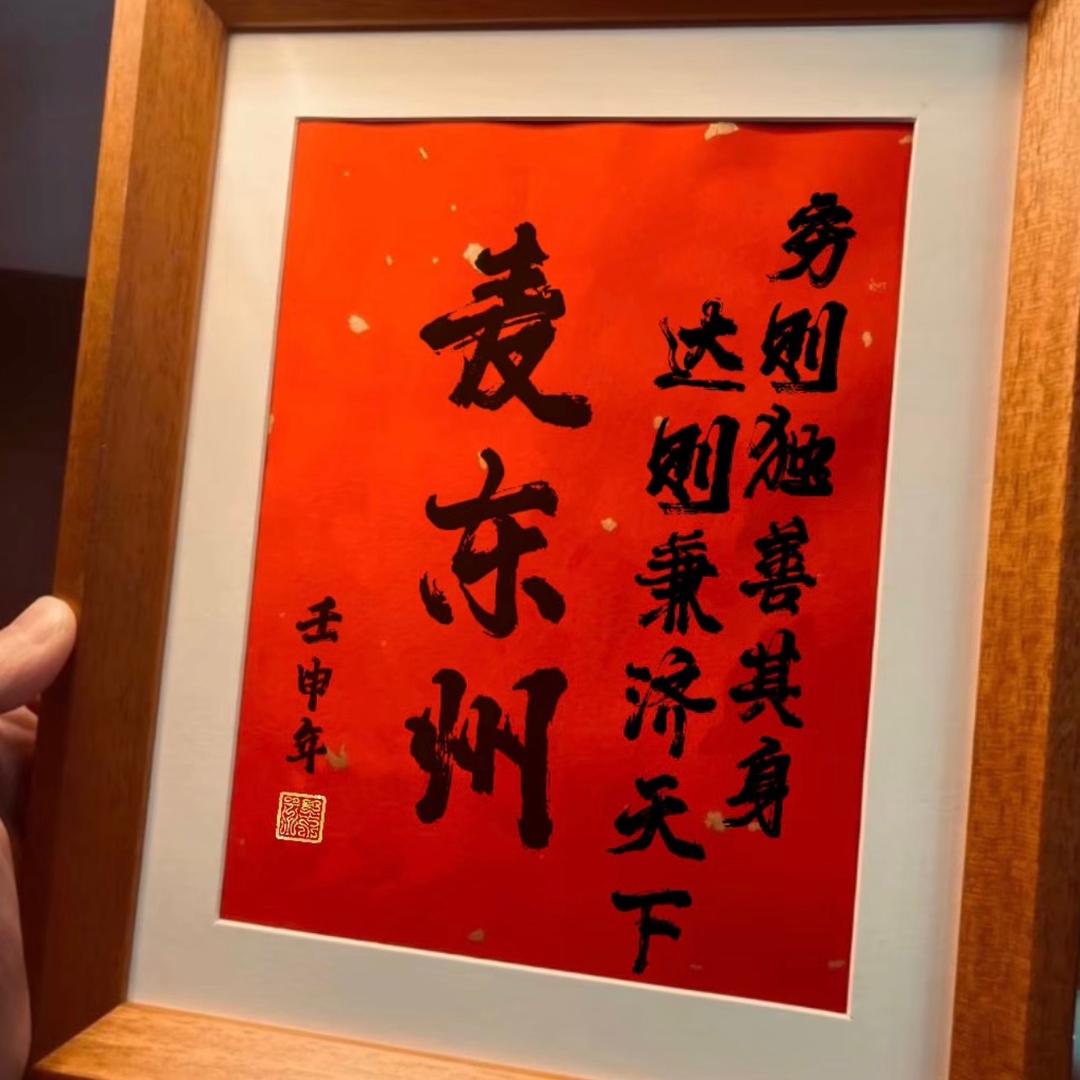 穷则独善其身
达则兼济天下
麦东州
壬申年